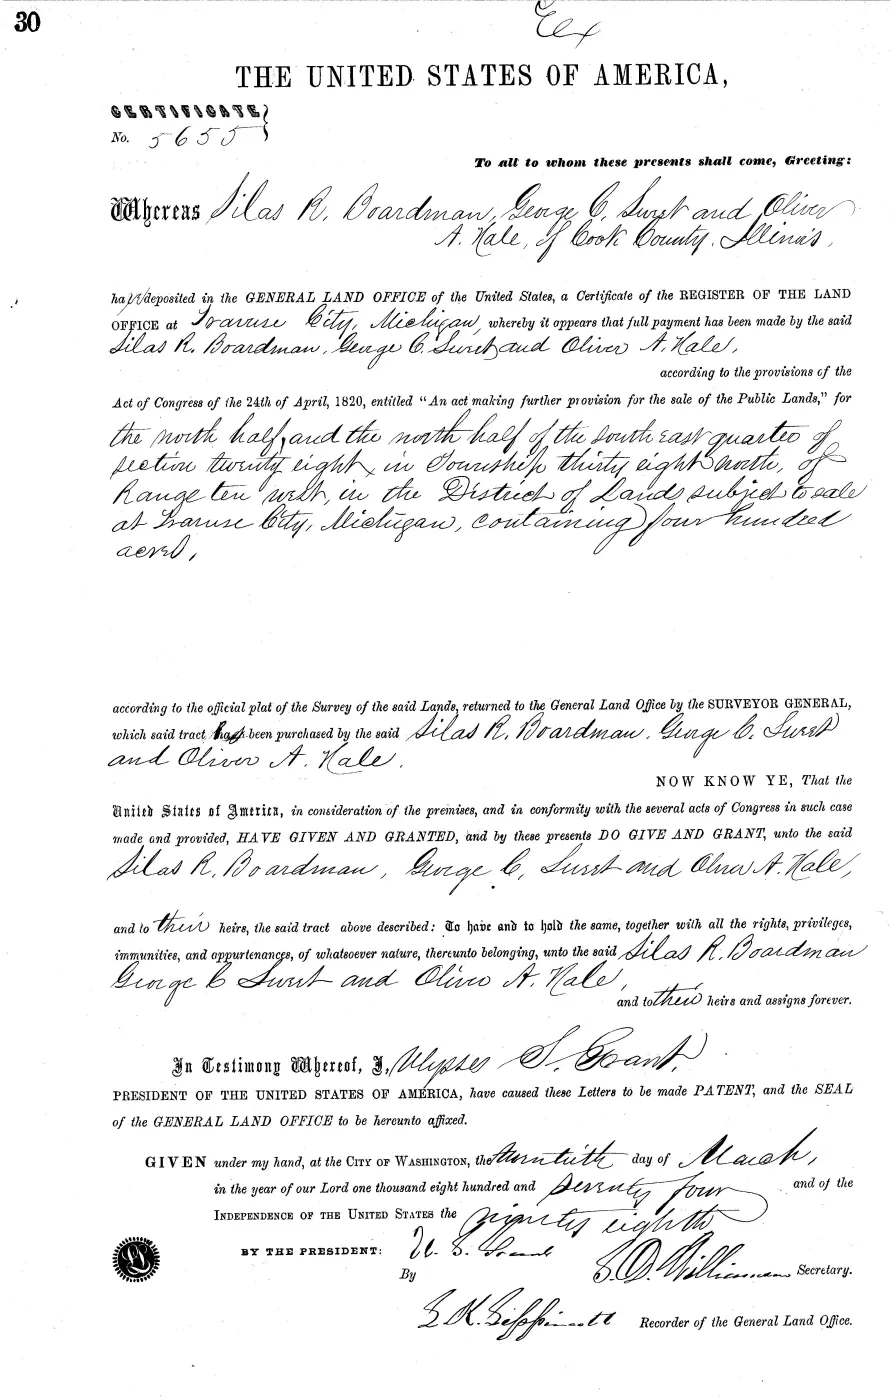 30
Ex
THE UNITED STATES OF AMERICA,
CERTIFICATE
No. 5655
To all to whom these presents shall come, Greeting:
Whereas Silas R. Boardman, George C. Sweet and Oliver
A. Hale, of Cook County, Illinois,
have deposited in the GENERAL LAND OFFICE of the United States, a Certificate of the REGISTER OF THE LAND
OFFICE at Traverse City, Michigan, whereby it appears that full payment has been made by the said
Silas R. Boardman, George C. Sweet, and Oliver A. Hale,
according to the provisions of the
Act of Congress of the 24th of April, 1820, entitled “An act making further provision for the sale of the Public Lands,” for
the north half, and the north half of the south east quarter of
section twenty eight, in Township thirty eight north, of
Range ten west, in the District of Lands subject to sale
at Traverse City, Michigan, containing four hundred
acres,
according to the official plat of the Survey of the said Lands, returned to the General Land Office by the SURVEYOR GENERAL,
which said tract has been purchased by the said Silas R. Boardman, George C. Sweet
and Oliver A. Hale.
NOW KNOW YE, That the
United States of America, in consideration of the premises, and in conformity with the several acts of Congress in such case
made and provided, HAVE GIVEN AND GRANTED, and by these presents DO GIVE AND GRANT, unto the said
Silas R. Boardman, George C. Sweet and Oliver A. Hale,
and to their heirs, the said tract above described: To have and to hold the same, together with all the rights, privileges,
immunities, and appurtenances, of whatsoever nature, thereunto belonging, unto the said Silas R. Boardman
George C Sweet and Oliver A. Hale,
and to their heirs and assigns forever.
In Testimony Whereof, I, Ulysses S. Grant,
PRESIDENT OF THE UNITED STATES OF AMERICA, have caused these Letters to be made PATENT, and the SEAL
of the GENERAL LAND OFFICE to be hereunto affixed.
GIVEN under my hand, at the CITY OF WASHINGTON, the twentieth day of March,
in the year of our Lord one thousand eight hundred and seventy four and of the
INDEPENDENCE OF THE UNITED STATES the ninety eighth
BY THE PRESIDENT: U. S. Grant
By S. D. Williamson Secretary.
L. K. Lippincott Recorder of the General Land Office.